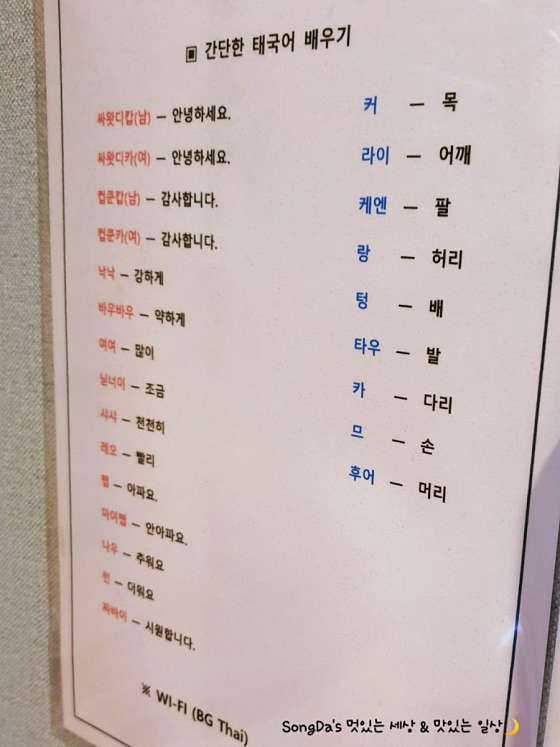 ▣ 간단한 태국어 배우기
싸왓디캅(남) – 안녕하세요.
싸왓디카(여) – 안녕하세요.
컵쿤캅(남) – 감사합니다.
컵쿤카(여) – 감사합니다.
낙낙 – 강하게
바우바우 – 약하게
여여 – 많이
닏너이 – 조금
사사 – 천천히
레오 – 빨리
쨉 – 아파요.
마이쨉 – 안아파요.
나우 – 추워요
힌 – 더워요
싸바이 – 시원합니다.
커 – 목
라이 – 어깨
케엔 – 팔
랑 – 허리
텅 – 배
타우 – 발
카 – 다리
므 – 손
후어 – 머리
※ WI-FI (BG Thai)
SongDa's 멋있는 세상 & 맛있는 일상🌙